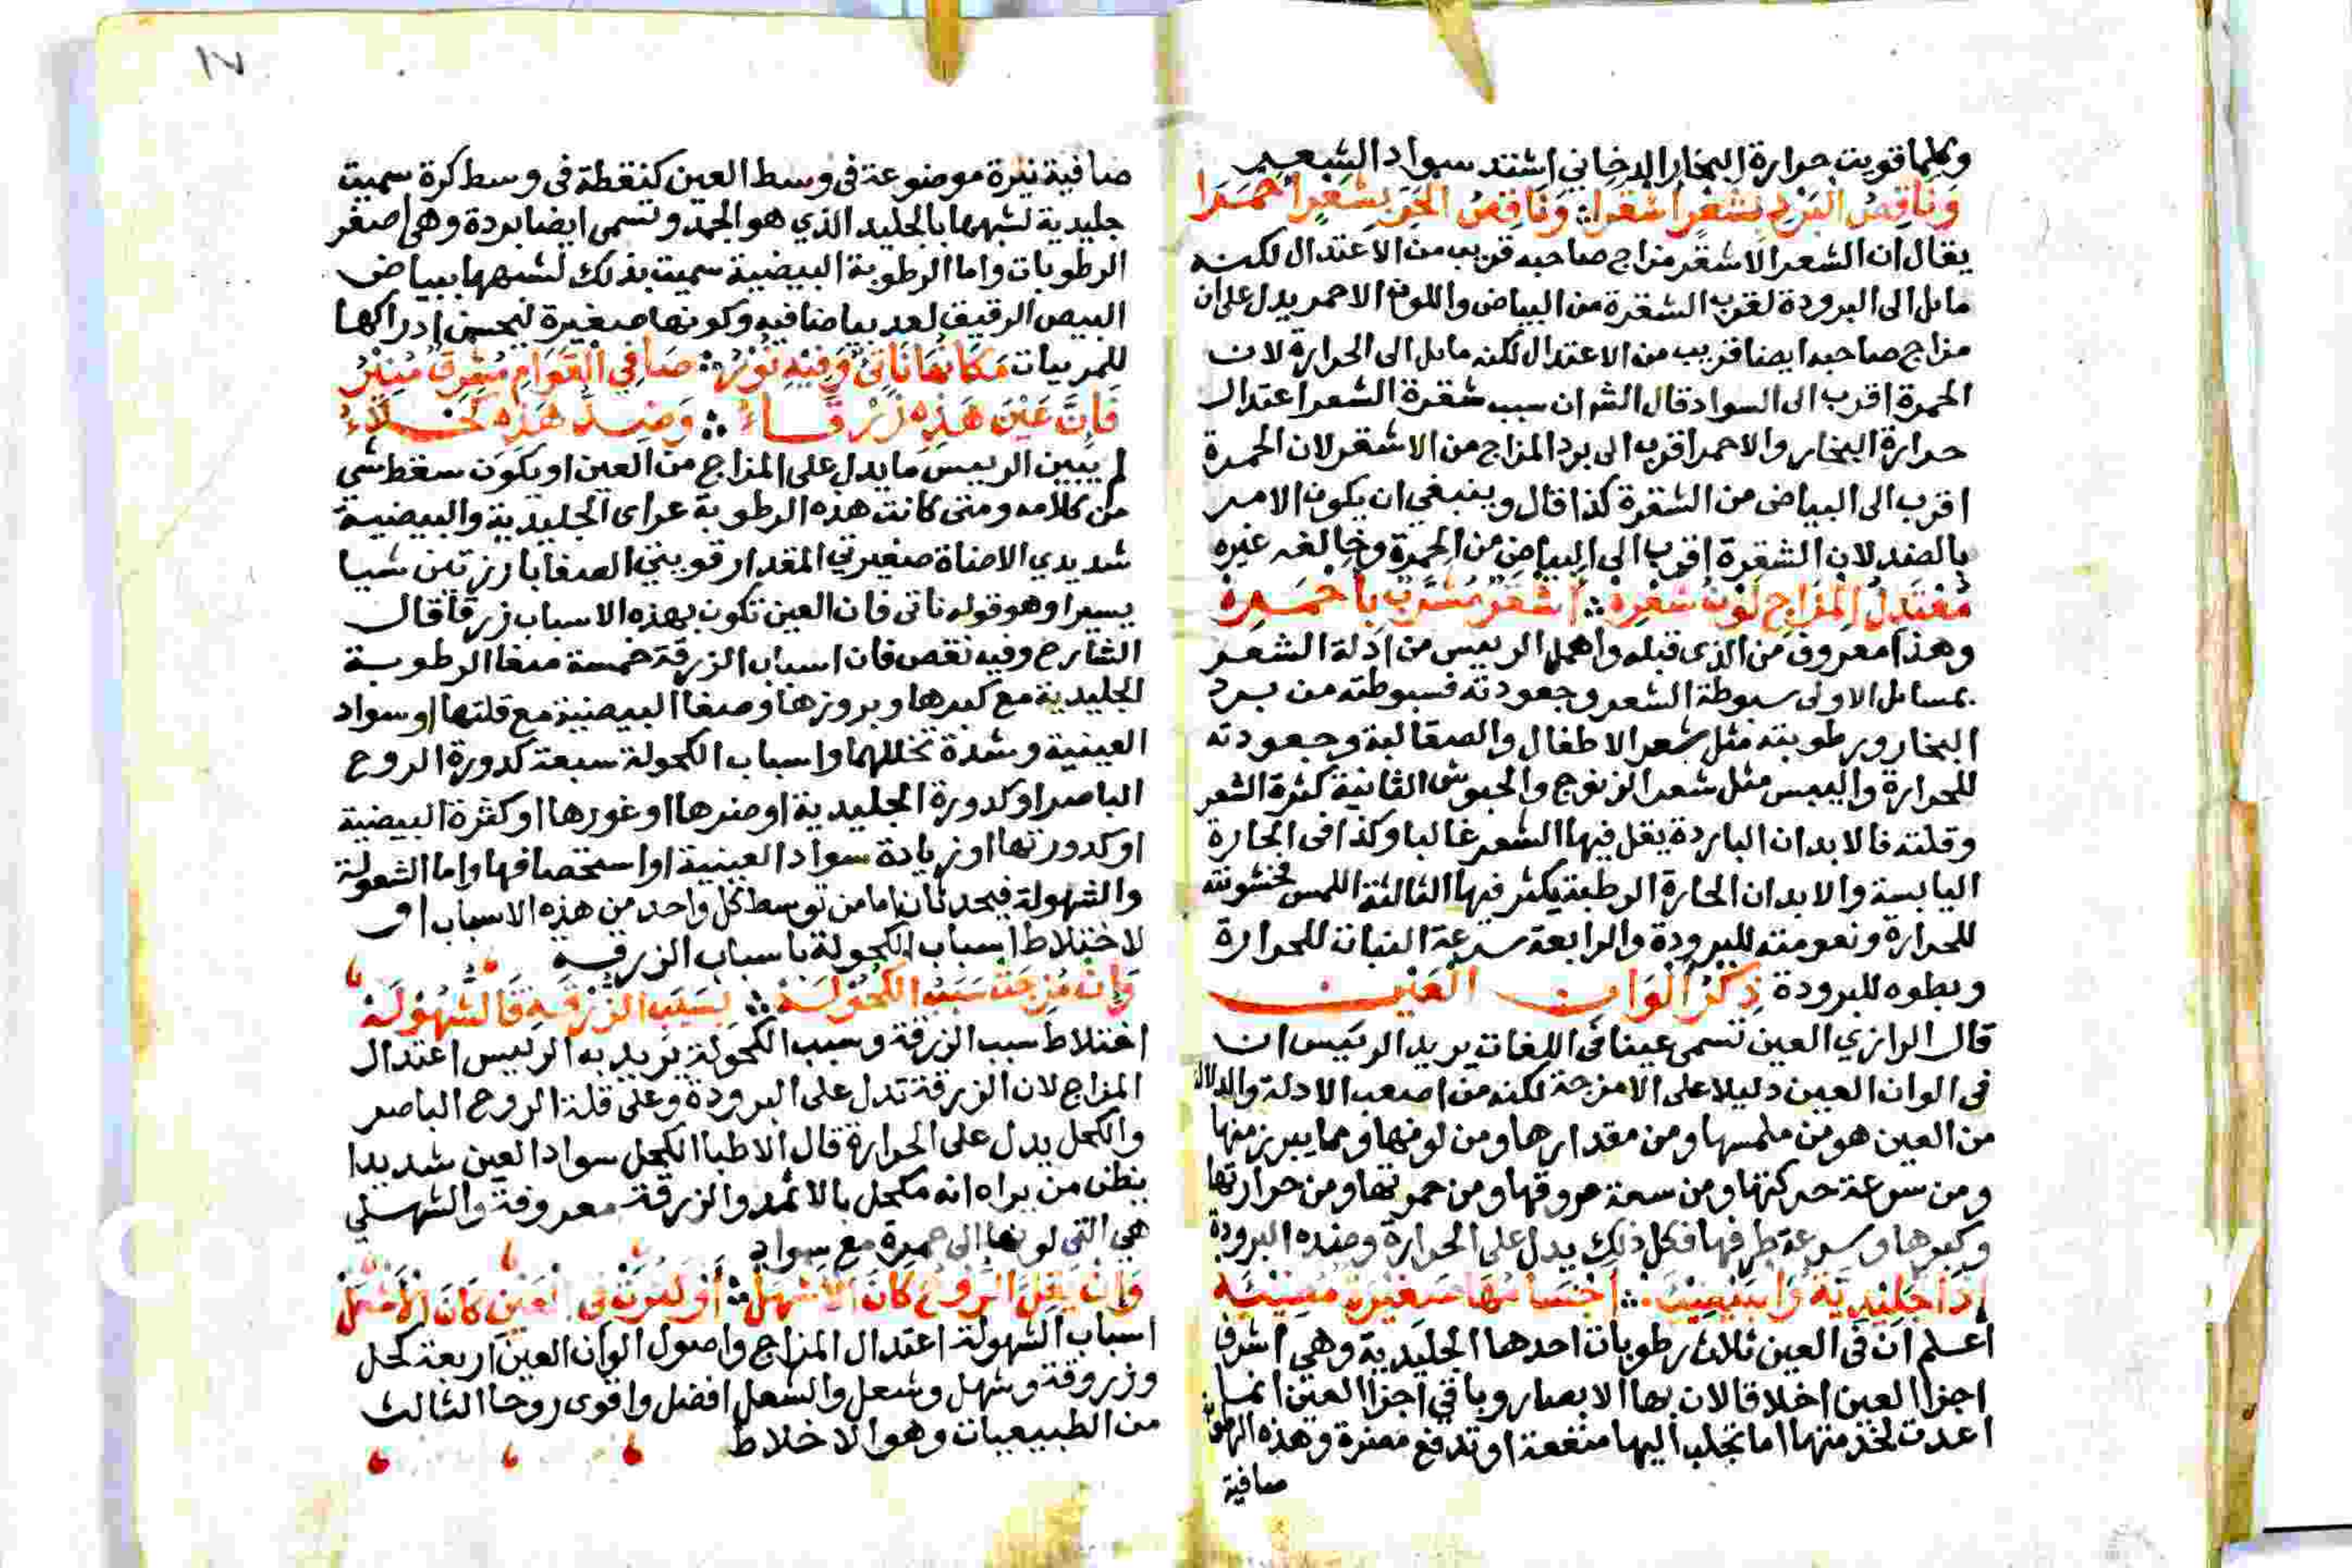 وكلما قويت حرارة البخار الدخاني اشتد سواد الشعر
وَنَاقِصُ البَرْدِ بشَعْرٍ اشقرا ∴ وَنَاقِصُ الحَرِّ بِشَعْرٍ احْمَرَا
يقال ان الشعر الاشقر مزاج صاحبه قريب من الاعتدال لكنه
مايل الى البرودة لقرب الشقرة من البياض واللون الاحمر يدل على ان
مزاج صاحبه ايضا قريب من الاعتدال لكنه مايل الى الحرارة لان
الحمرة اقرب الى السواد قال الشر ان سبب شقرة الشعر اعتدال
حرارة البخار والاحمر اقرب الى برد المزاج من الاشقر لان الحمرة
اقرب الى البياض من الشقرة كذا قال وينبغي ان يكون الامر
بالضد لان الشقرة اقرب الى البياض من الحمرة وخالفه غيره
مُعْتَدِلُ المِزَاجِ لَوْنُ شَعْرِهْ ∴ اَشْقَرُ مُشْرَبٌ بِاَحْمَرِهْ
وهذا معروف من الذى قبله واهمل الرييس من ادلة الشعر
بمسايل الاولى سبوطة الشعر وجعودته فسبوطته من برد
البخار ورطوبته مثل شعر الاطفال والصقالبة وجعودته
للحرارة واليبس مثل شعر الزنوج والحبوش الثانية كثرة الشعر
وقلته فالابدان الباردة يقل فيها الشعر غالبا وكذا فى الحارة
اليابسة والابدان الحارة الرطبة يكثر فيها الثالثة اللمس فخشونته
للحرارة ونعومته للبرودة والرابعة سرعة النبات للحرارة
وبطوه للبرودة ذِكْرُ اَلْوَانِ الْعَيْنِ
قال الرازي العين تسمى عينا فى اللغات يريد الرئيس ان
فى الوان العين دليلا على الامزجة لكنه من اصعب الادلة والدلالة
من العين هو من ملمسها ومن مقدارها ومن لونها ومما يبرز منها
ومن سرعة حركتها ومن سعة عروقها ومن حمرتها ومن حرارتها
وكبرها وسرعة طرفها فكل ذلك يدل على الحرارة وضده البرودة
اِذَا جَلِيدِيَّة وَا بَيْضِيَّه ∴ اجْسَامُهَا صَغِيرَة مُضِيَّه
اعلم ان فى العين ثلاث رطوبات احدها الجليدية وهي اشرف
اجزا العين اخلاقا لان بها الابصار وباقي اجزا العين انما
اعدت لخدمتها اما تجلب اليها منفعة او تدفع مضرة وهذه الرطوبة
صافية
١٧
صافية نيرة موضوعة فى وسط العين كنقطة فى وسط كرة سميت
جليدية لشبهها بالجليد الذي هو الجمد وتسمى ايضا بردة وهى اصغر
الرطوبات واما الرطوبة البيضية سميت بذلك لشبهها ببياض
البيض الرقيق لعد بياضا فيه وكونها صغيرة ليحسن ادراكها
للمريات مَكَانُهَا نَاتِىٌ وَفِيْهِ نُوْرُ ∴ صَافِي الْقَوَامِ مُشْرِقٌ مُنِيْرُ
فَاِنَّ عَيْنَ هَذِهِ زَرْقَاءُ ∴ وَضِدُّ هَذِهِ كَحْلَاءُ
لم يبين الرييس ما يدل على المزاج من العين او يكون سقط شى
من كلامه ومتى كانت هذه الرطوبة عراى الجليدية والبيضية
شديدي الاضاة صغيرتي المقدار قويتي الصفا بارزتين شيا
يسيرا وهو قوله ناتى فان العين تكون بهذه الاسباب زرقا قال
الشارح وفيه نقص فان اسباب الزرقة خمسة صفا الرطوبة
الجليدية مع كبرها وبروزها وصفا البيضية مع قلتها او سواد
العينية وشدة تخللهما واسباب الكحولة سبعة كدورة الروح
الباصر او كدورة الجليدية او صغرها او غورها او كثرة البيضية
او كدورتها او زيادة سواد العينية او استخصافها واما الشعولة
والشهولة فيحدثان اما من توسط كل واحد من هذه الاسباب او
لاختلاط اسباب الكحولة باسباب الزرقة
وَاِنْ مُزِجَتْ سَبَبُ الكُحُوْلَه ∴ بِسَبَبِ الزُّرْقَةِ فَالشُّهُوْلَه
اختلاط سبب الزرقة وسبب الكحولة يريد به الرييس اعتدال
المزاج لان الزرقة تدل على البرودة وعلى قلة الروح الباصر
والكحل يدل على الحرارة قال الاطبا الكحل سواد العين شديدا
يظن من يراه انه مكحل بالاثمد والزرقة معروفة والشهلي
هي التي لونها الى حمرة مع سواد
وَاِنْ يَقِلَّ الرُّوْحُ كَانَ الاشهَلُ ∴ اَوْ كَثُرَتْ فى الْعَيْنِ كَانَ الاَشْعَلُ
اسباب الشهولة اعتدال المزاج واصول الوان العين اربعة كحل
وزروقة وشهل وشعل والشعل افضل واقوى روحا الثالث
من الطبيعيات وهو الاخلاط